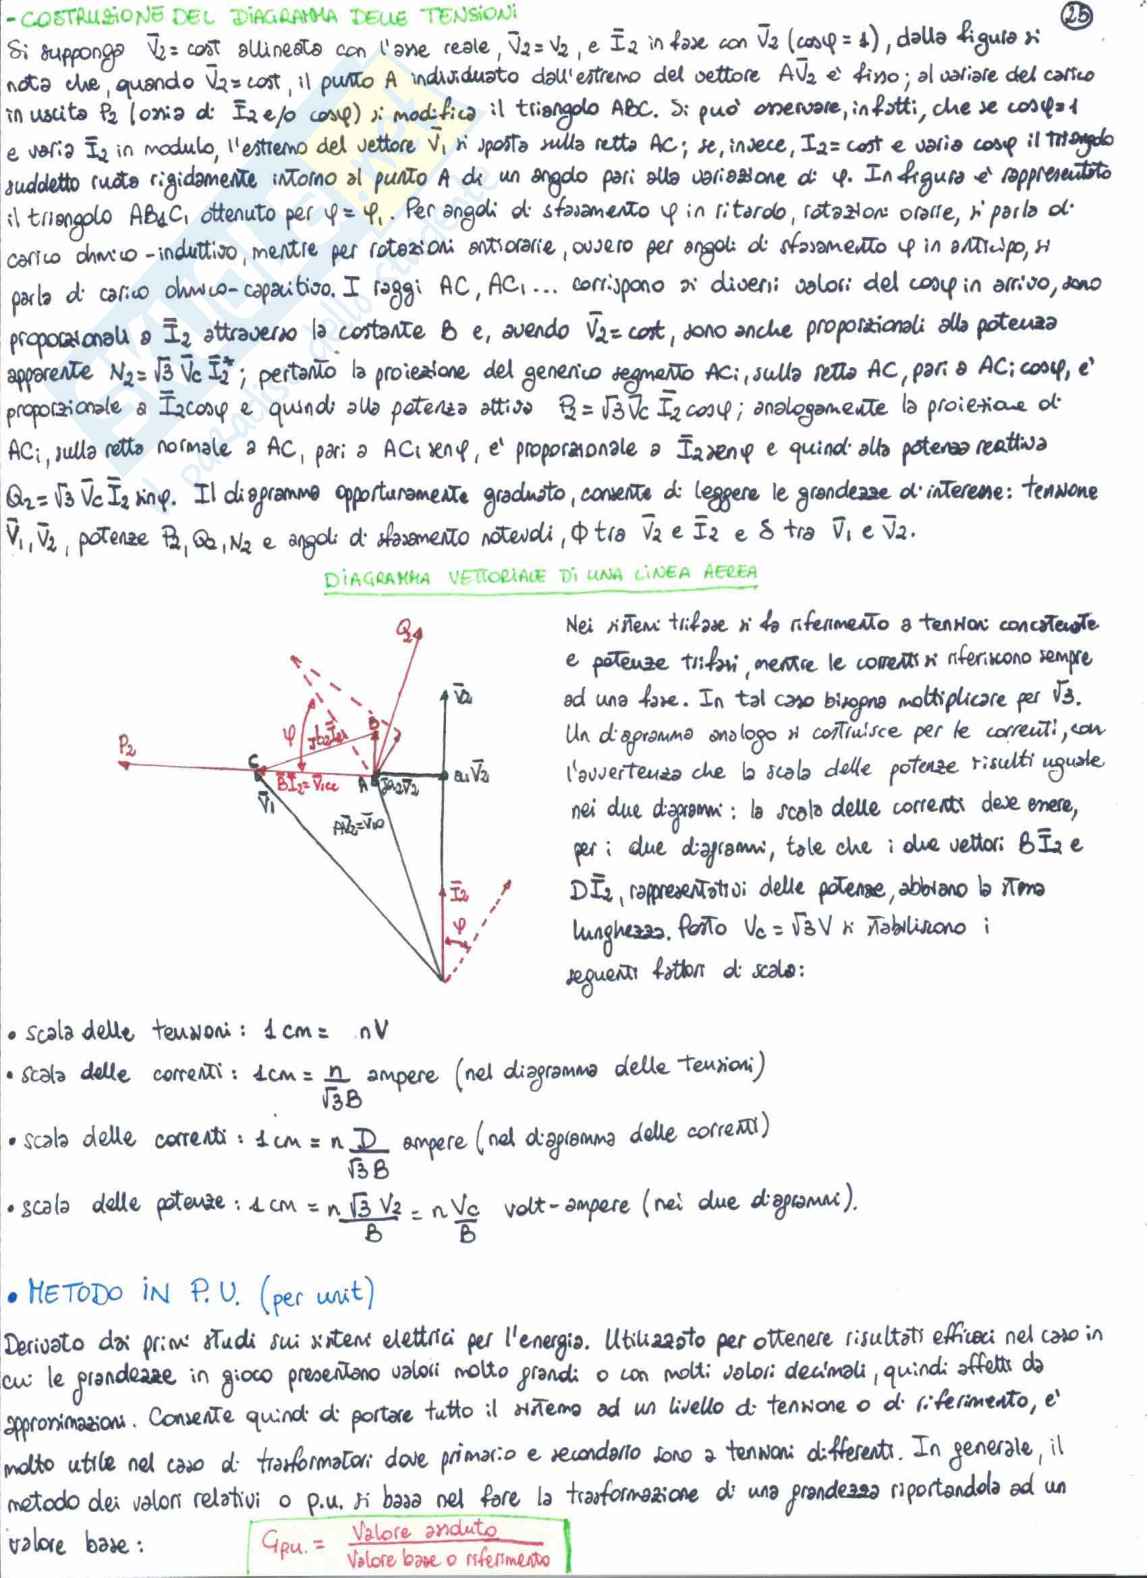 - COSTRUZIONE DEL DIAGRAMMA DELLE TENSIONI
25
Si suppongo V̄2 = cost allineata con l'asse reale, V̄2 = V2, e Ī2 in fase con V̄2 (cosφ = 1), dalla figura si
nota che, quando V̄2 = cost, il punto A individuato dall'estremo del vettore AV̄2 è fisso; al variare del carico
in uscita P2 (ossia di Ī2 e/o cosφ) si modifica il triangolo ABC. Si può osservare, infatti, che se cosφ=1
e varia Ī2 in modulo, l'estremo del vettore V̄1 si sposta sulla retta AC; se, invece, I2 = cost e varia cosφ il triangolo
suddetto ruota rigidamente intorno al punto A di un angolo pari alla variazione di φ. In figura è rappresentato
il triangolo AB1C1 ottenuto per φ = φ1. Per angoli di sfasamento φ in ritardo, rotazioni orarie, si parla di
carico ohmico-induttivo, mentre per rotazioni antiorarie, ovvero per angoli di sfasamento φ in anticipo, si
parla di carico ohmico-capacitivo. I raggi AC, AC1... corrispono ai diversi valori del cosφ in arrivo, sono
proporzionali a Ī2 attraverso la costante B e, avendo V̄2 = cost, sono anche proporzionali alla potenza
apparente N2 = √3 V̄c Ī2*; pertanto la proiezione del generico segmento ACi, sulla retta AC, pari a ACi cosφ, è
proporzionale a Ī2cosφ e quindi alla potenza attiva P2 = √3 V̄c Ī2 cosφ; analogamente la proiezione di
ACi, sulla retta normale a AC, pari a ACi senφ, è proporzionale a Ī2senφ e quindi alla potenza reattiva
Q2 = √3 V̄c Ī2 sinφ. Il diagramma opportunamente graduato, consente di leggere le grandezze d'interesse: tensione
V̄1, V̄2, potenze P2, Q2, N2 e angoli di sfasamento notevoli, Φ tra V̄2 e Ī2 e δ tra V̄1 e V̄2.
DIAGRAMMA VETTORIALE DI UNA LINEA AEREA
Q2
V̄2
φ
B
P2
C
V̄1
BĪ2 = V̄1cc
A
ja2V̄2
a1V̄2
AV̄2 = V̄10
Ī2
φ
Nei sistemi trifase si fa riferimento a tensioni concatenate
e potenze trifasi, mentre le correnti si riferiscono sempre
ad una fase. In tal caso bisogna moltiplicare per √3.
Un diagramma analogo si costruisce per le correnti, con
l'avvertenza che la scala delle potenze risulti uguale
nei due diagrammi: la scala delle correnti deve essere,
per i due diagrammi, tale che i due vettori BĪ2 e
DĪ2, rappresentativi delle potenze, abbiano la stessa
lunghezza. Posto Vc = √3V si stabiliscono i
seguenti fattori di scala:
• scala delle tensioni : 1 cm = nV
• scala delle correnti : 1cm = n/√3B ampere (nel diagramma delle tensioni)
• scala delle correnti : 1 cm = n D/√3B ampere (nel diagramma delle correnti)
• scala delle potenze : 1 cm = n √3 V2/B = n Vc/B volt-ampere (nei due diagrammi).
• METODO IN P.U. (per unit)
Derivato dai primi studi sui sistemi elettrici per l'energia. Utilizzato per ottenere risultati efficaci nel caso in
cui le grandezze in gioco presentano valori molto grandi o con molti valori decimali, quindi affetti da
approssimazioni. Consente quindi di portare tutto il sistema ad un livello di tensione o di riferimento, e'
molto utile nel caso di trasformatori dove primario e secondario sono a tensioni differenti. In generale, il
metodo dei valori relativi o p.u. si basa nel fare la trasformazione di una grandezza riportandola ad un
valore base :
Gpu. = Valore assoluto / Valore base o riferimento